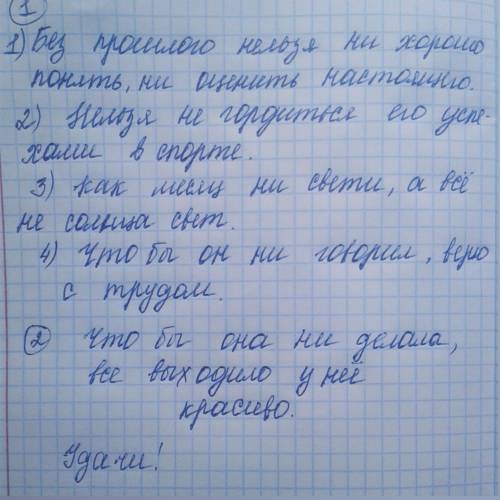 1
1) Без прошлого нельзя ни хорошо
понять, ни оценить настоящего.
2) Нельзя не гордиться его успе-
хами в спорте.
3) Как месяц ни свети, а всё
не солнца свет.
4) Что бы он ни говорил, верю
с трудом.
2 Что бы она ни делала,
все выходило у неё
красиво.
Удачи!